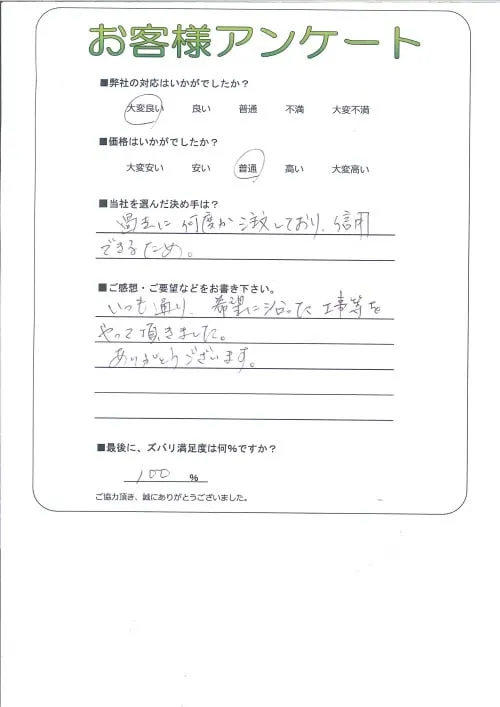 お客様アンケート
■弊社の対応はいかがでしたか？
大変良い 良い 普通 不満 大変不満
■価格はいかがでしたか？
大変安い 安い 普通 高い 大変高い
■当社を選んだ決め手は？
過去に何度か注文しており、信用
できるため。
■ご感想・ご要望などをお書き下さい。
いつも通り、希望に沿った工事等を
やって頂きました。
ありがとうございます。
■最後に、ズバリ満足度は何%ですか？
100 %
ご協力頂き、誠にありがとうございました。